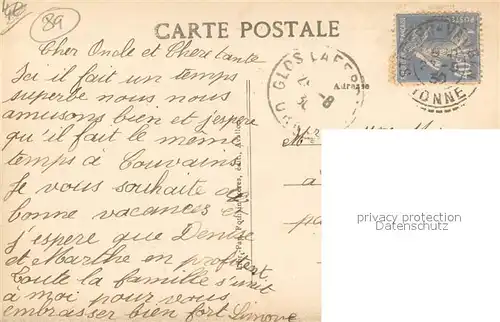 42
89
CARTE POSTALE
Cher Oncle et Chere tante
Ici il fait un temps
superbe nous nous
amusons bien et j'espere
qu'il fait le même
temps à Couvains
Je vous souhaite de
bonne vacances et
j'espere que Denise
et Marthe en profitent
Toute la famille s'unit
à moi pour vous
embrasser bien fort Simone
GLOS LA FERR
Adresse
POSTES
40
YONNE
à
privacy protection
Datenschutz